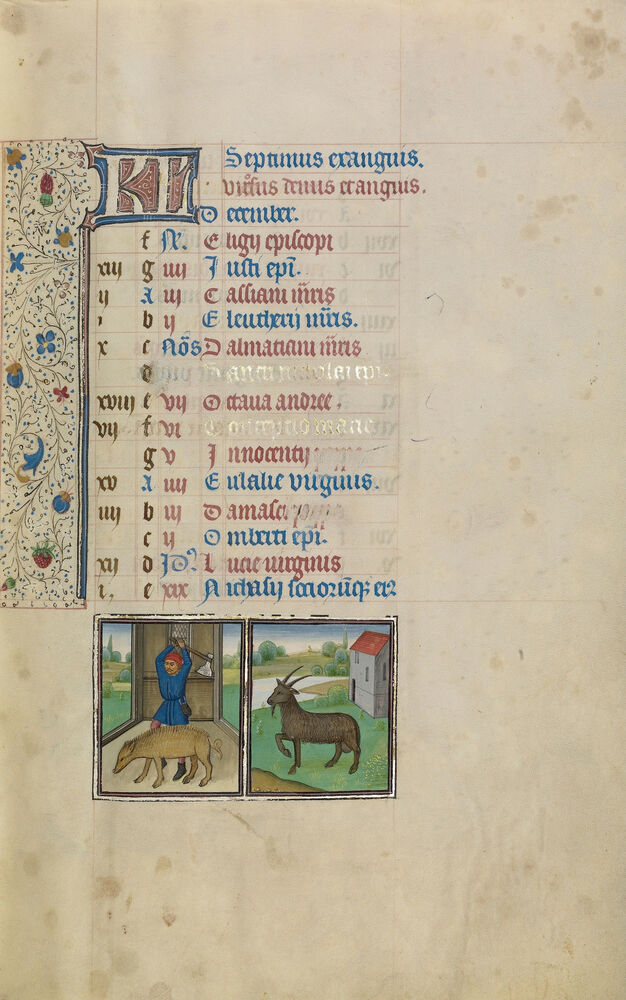 KL Septimus exanguis.
virosus denus et anguis.
December.
f N̄. Eligij episcopi
xiij g iiij Iusti epi.
ij A iij Cassiani mris
i b ij Eleutherij mris.
x c Nōs Dalmaticni mris
d Sancti nicolai epi.
xviij e vij Octaua andree.
vij f vi Conceptio marie
g v Innocentij pape
xv A iiij Eulalie virginis.
iiij b iij Damasci pape
c ij Omberti epi.
xij d Id9 Lucie virginis
i. e xix Nichasij sociorūqz eiz